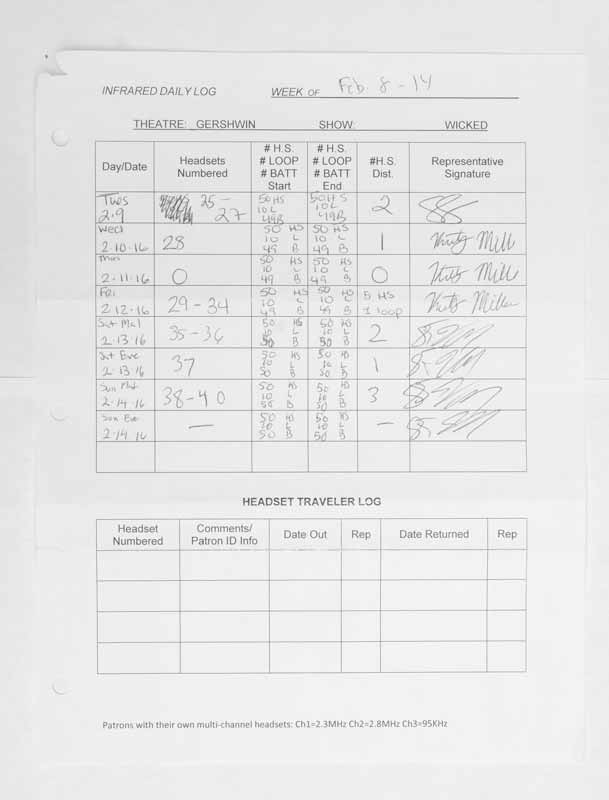 INFRARED DAILY LOG WEEK OF Feb. 8 - 14
THEATRE: GERSHWIN SHOW: WICKED
Day/Date Headsets Numbered # H.S. # LOOP # BATT Start # H.S. # LOOP # BATT End #H.S. Dist. Representative Signature
Tues 2.9 25 - 27 50 HS 10 L 49 B 50 HS 10 L 49 B 2
Wed 2.10.16 28 50 HS 10 L 49 B 50 HS 10 L 49 B 1
2.11.16 0 50 HS 10 L 49 B 50 HS 10 L 49 B 0
Fri 2.12.16 29 - 34 50 HS 10 L 49 B 50 HS 10 L 49 B 5 HS 1 loop
Sat Mat 2.13.16 35 - 36 50 HS 10 L 50 B 50 HS 10 L 50 B 2
Sat Eve 2.13.16 37 50 HS 10 L 50 B 50 HS 10 L 50 B 1
Sun Mat 2.14.16 38 - 40 50 HS 10 L 50 B 50 HS 10 L 50 B 3
Sun Eve 2.14.16 — 50 HS 10 L 50 B 50 HS 10 L 50 B —
HEADSET TRAVELER LOG
Headset Numbered Comments/ Patron ID Info Date Out Rep Date Returned Rep
Patrons with their own multi-channel headsets: Ch1=2.3MHz Ch2=2.8MHz Ch3=95KHz